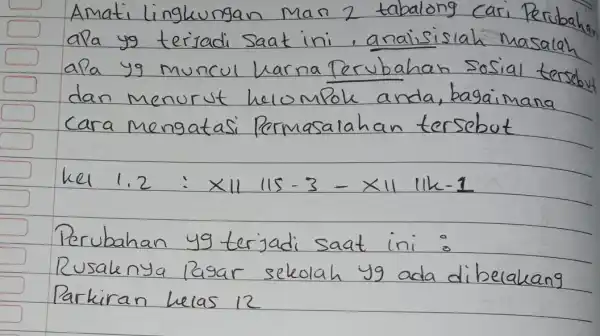 Amati lingkungan Man 2 tabalong cari Perubahan
aPa yg terjadi Saat ini, analisislah Masalah
aPa yg muncul karna Perubahan Sosial tersebut
dan menurut kelomPok anda, bagaimana
Cara mengatasi Permasalahan tersebut
kel 1.2 : XII IIS - 3 - XII IIK - 1
Perubahan yg terjadi saat ini :
Rusaknya Pagar sekolah yg ada dibelakang
Parkiran kelas 12